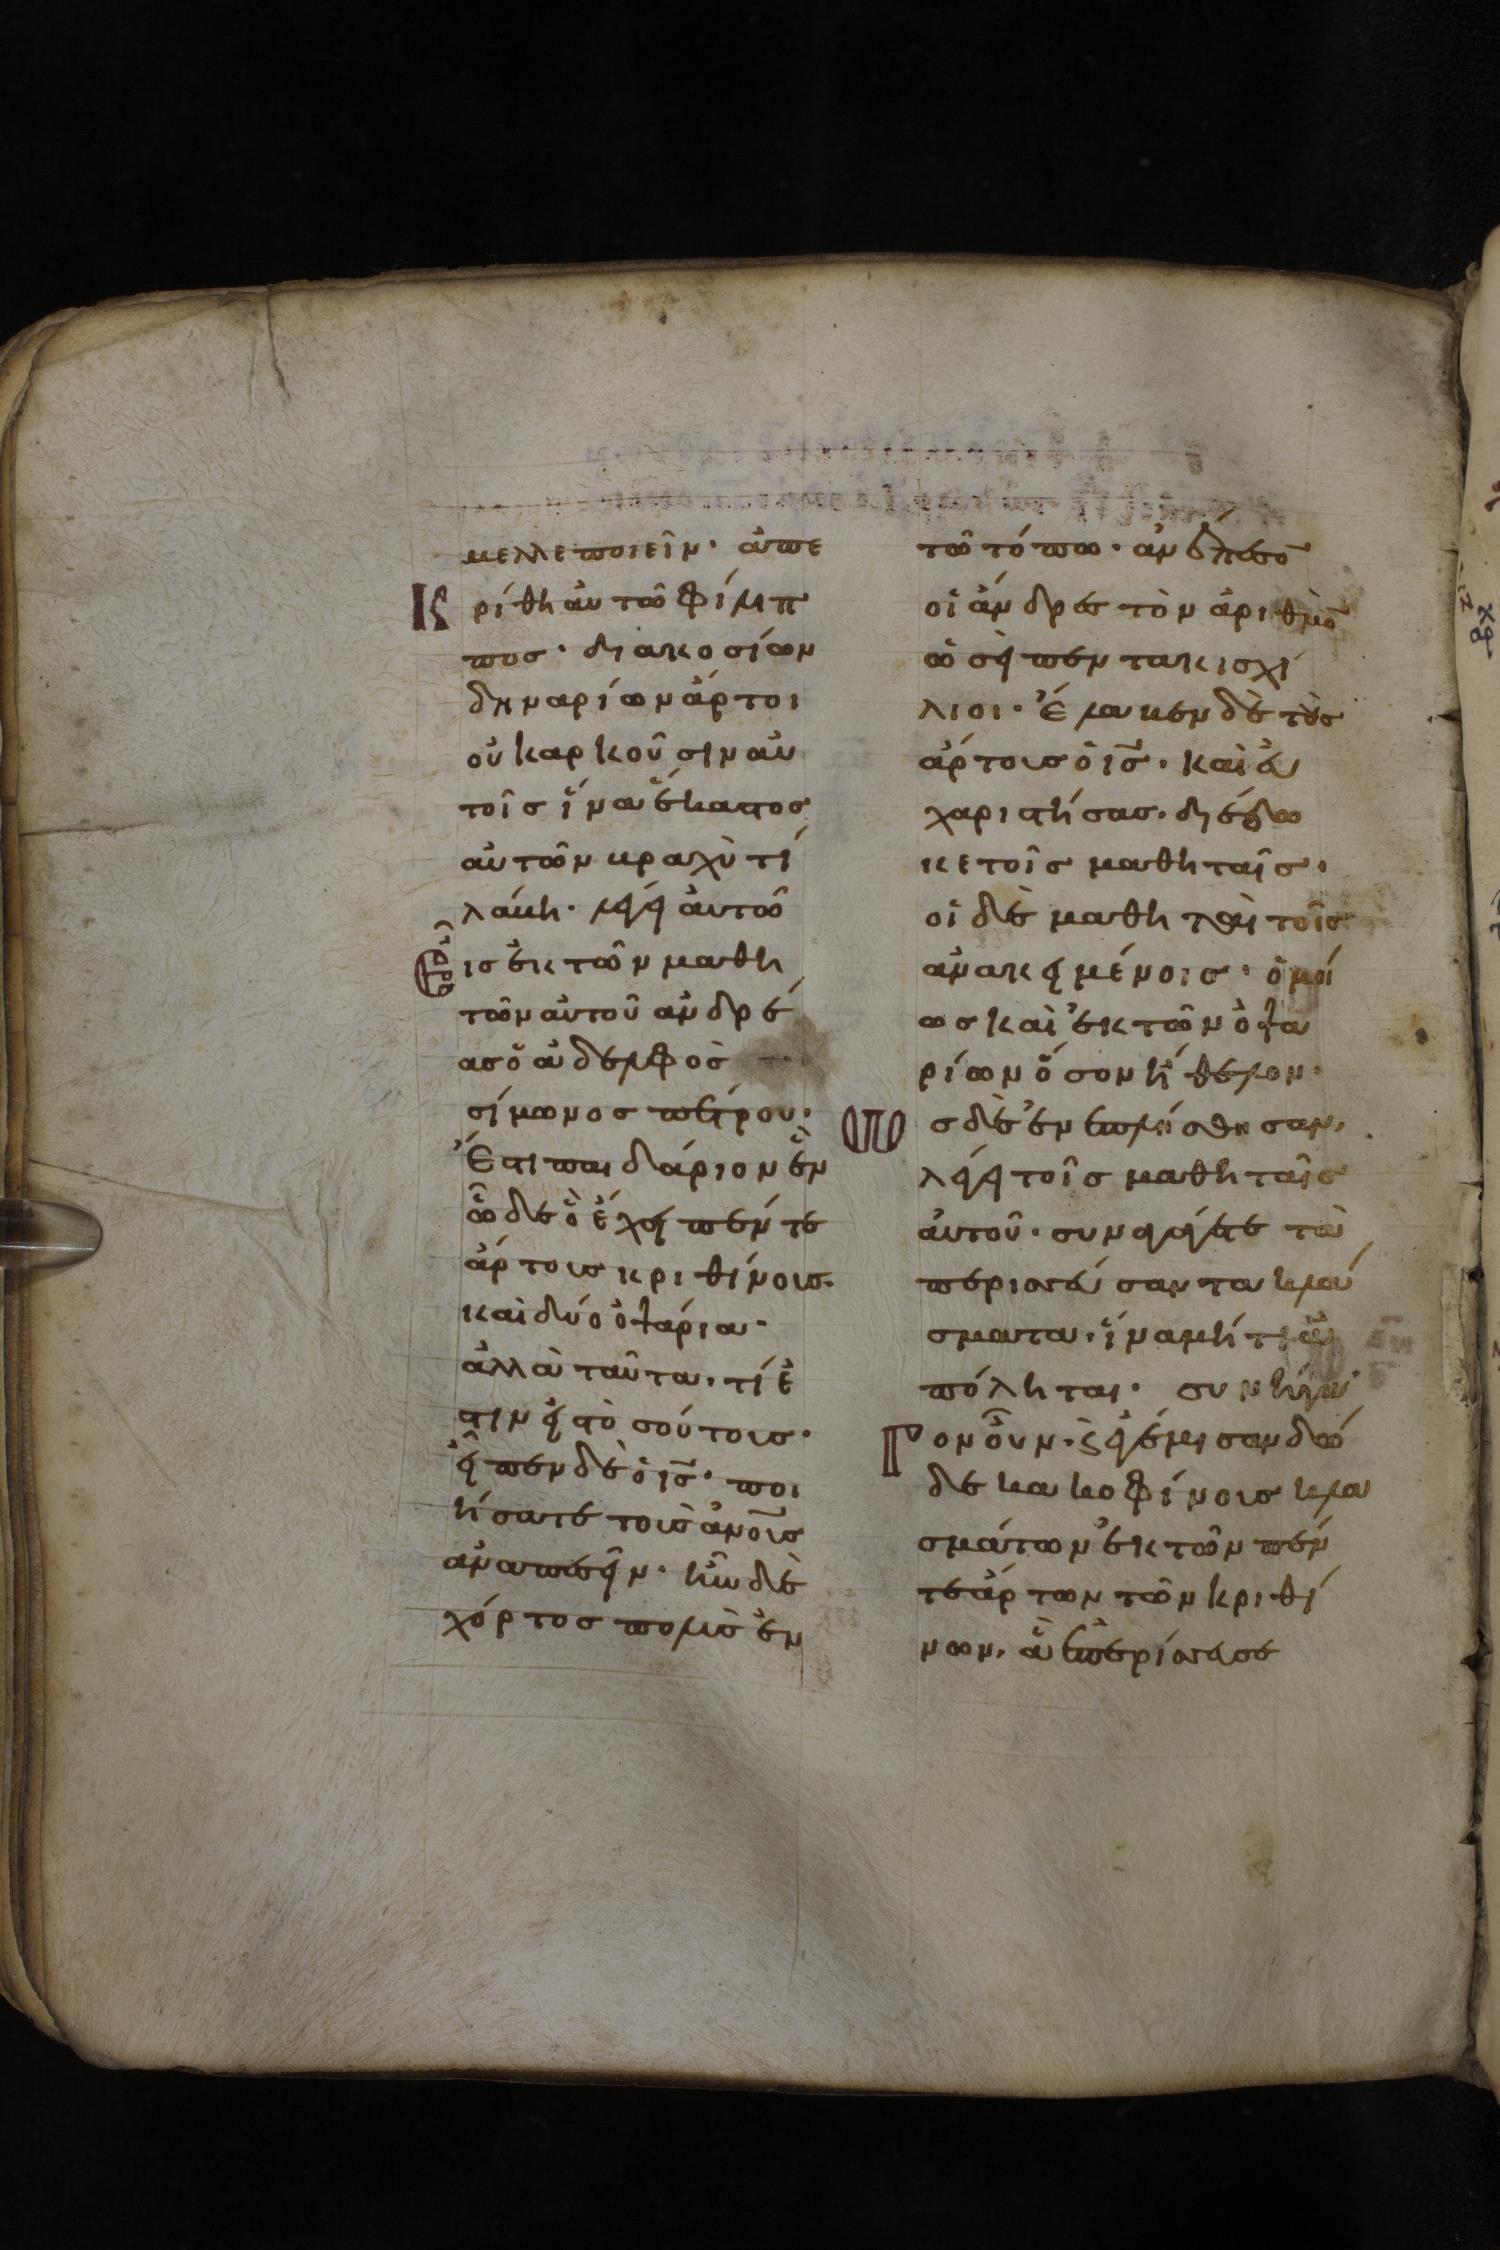 μελλε ποιεῖν· ἀπε
Κρίθη αὐτῶ φίλιπ
πος· διακοσίων
δηναρίων ἄρτοι
οὐκ ἀρκοῦσιν αὐ
τοῖς ἵνα ἕκαστος
αὐτῶν βραχύ τί
λάβη· λέγει αὐτῶ
Εἷς ἐκ τῶν μαθη
τῶν αὐτοῦ ἀνδρέ
ας ὁ ἀδελφὸς
σίμωνος πέτρου·
Ἔστι παιδάριον ἓν
ὧδε ὃ ἔχει πέντε
ἄρτους κριθίνους·
καὶ δύο ὀψάρια·
ἀλλὰ ταῦτα, τί ἐ
στιν εἰς τοσούτους·
εἶπεν δὲ ὁ ις· ποι
ήσατε τοὺς ἀνους
ἀναπεσεῖν· ἦν δὲ
χόρτος πολὺς ἐν
τῶ τόπω· ἀνέπεσον
οἱ ἄνδρες τὸν ἀριθμὸν
ὡσεὶ πεντακισχί
λιοι· Ἔλαβεν δὲ τοὺς
ἄρτους ὁ ις· καὶ εὐ
χαριστήσας· διέδω
κε τοῖς μαθηταῖς·
οἱ δὲ μαθηταὶ τοῖς
ἀνακειμένοις· ὁμοί
ως καὶ ἐκ τῶν ὀψα
ρίων ὅσον ἤθελον·
ὡς δὲ ἐνεπλήσθησαν,
λέγει τοῖς μαθηταῖς
αὐτοῦ· συναγάγετε τὰ
περισσεύσαντα κλά
σματα, ἵνα μή τι ἀ
πόληται· συνήγα
Γον οὖν· καὶ ἐγέμισαν δώ
δεκα κοφίνους κλα
σμάτων ἐκ τῶν πέν
τε ἄρτων τῶν κριθί
νων, ἃ ἐπερίσσευσε